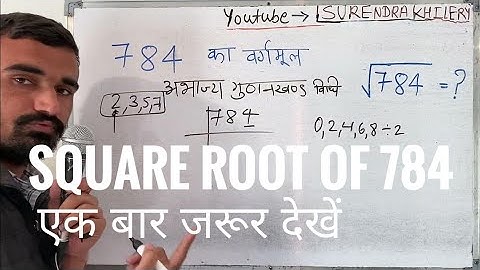 Youtube → SURENDRA KHILERY
784 का वर्गमूल
अभाज्य गुणनखण्ड विधि
√784 = ?
2,3,5,7
784
0,2,4,6,8÷2
SQUARE ROOT OF 784
एक बार जरूर देखें